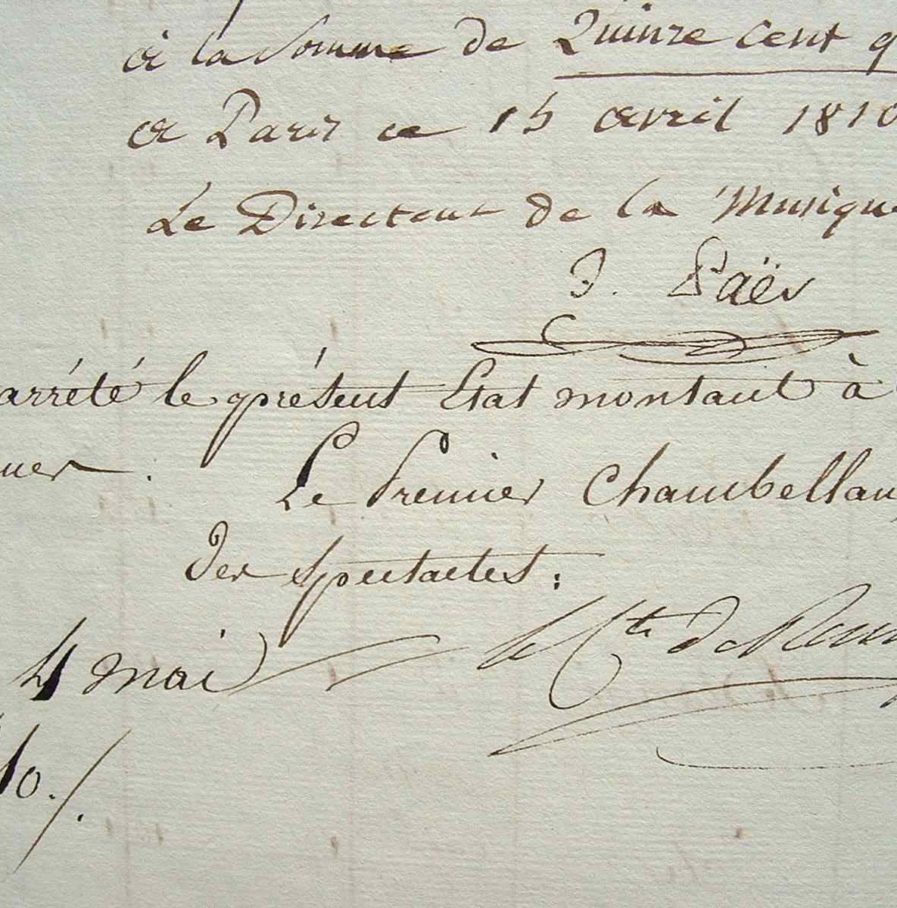 à la Somme de Quinze cent q
à Paris ce 15 avril 1810
Le Directeur de la Musique
F. Paër
arrété le présent Etat montant à
Le Premier Chambellan
des Spectacles:
4 mai le Cte de Rém
10./.